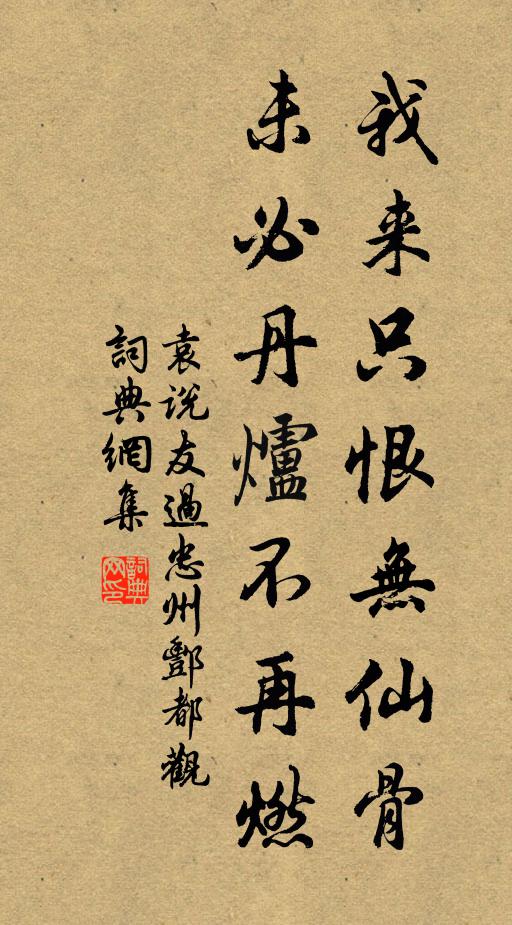 我来只恨無仙骨
未必丹爐不再燃
袁说友過忠州酆都觀
詞典網集
詞典网印